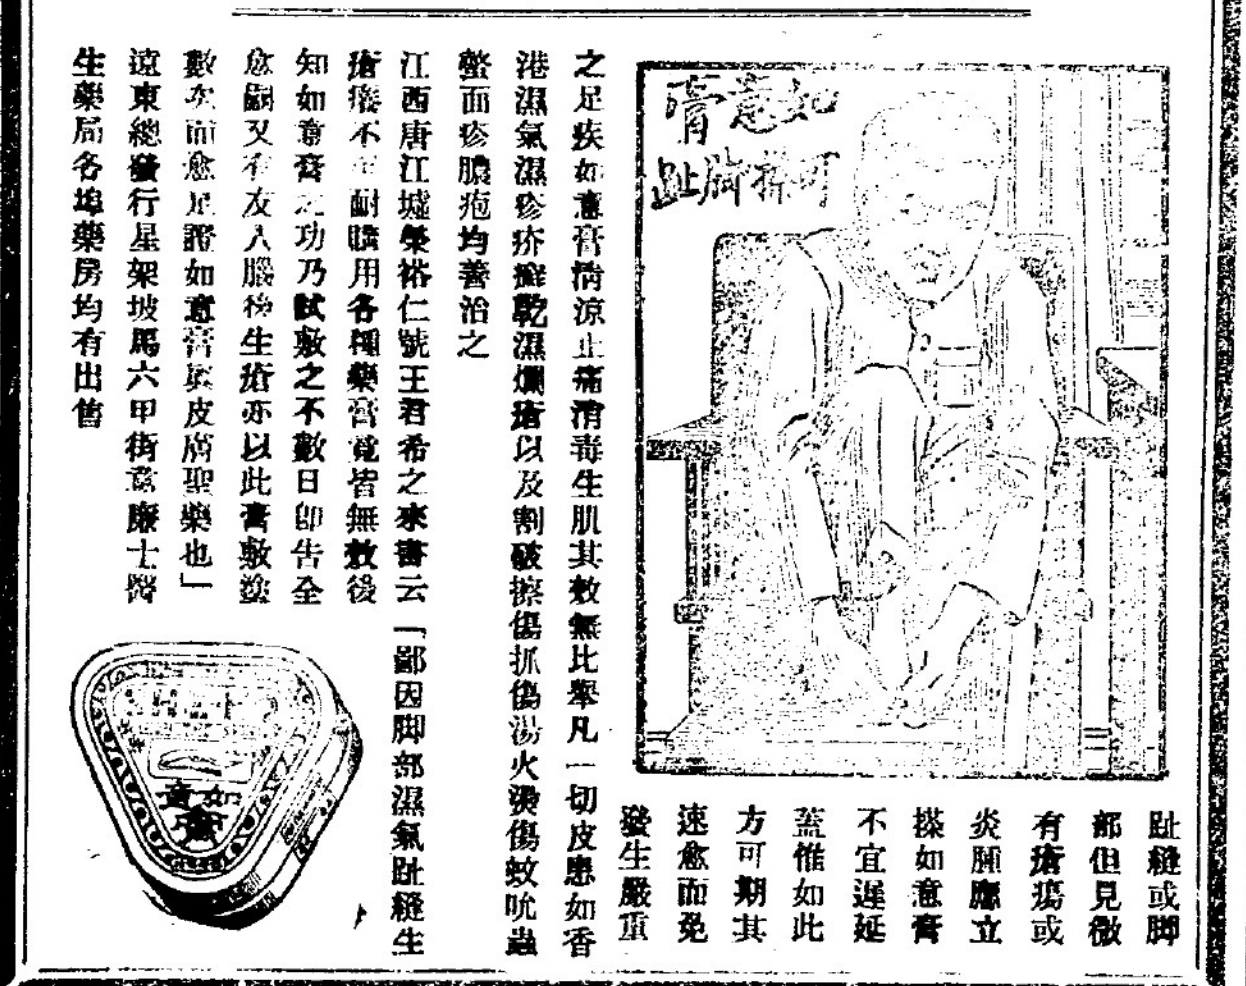 如意膏
可搽脚趾
趾縫或脚
部但見微
有瘡瘍或
炎腫應立
搽如意膏
不宜遲延
蓋惟如此
方可期其
速愈而免
發生嚴重
之足疾如意膏清涼止痛消毒生肌其效無比舉凡一切皮患如香
港濕氣濕疹疥癬乾濕爛瘡以及割破擦傷抓傷湯火燙傷蚊吮蟲
螫面疹膿疱均善治之
江西唐江墟榮裕仁號王君希之來書云「鄙因脚部濕氣趾縫生
瘡癢不可耐購用各種藥膏竟皆無效後
知如意膏之功乃試敷之不數日即告全
愈嗣又有友人腦後生瘡亦以此膏敷搽
數次而愈足證如意膏眞皮膚聖藥也」
遠東總發行星架坡馬六甲街韋廉士醫
生藥局各埠藥房均有出售
如意膏